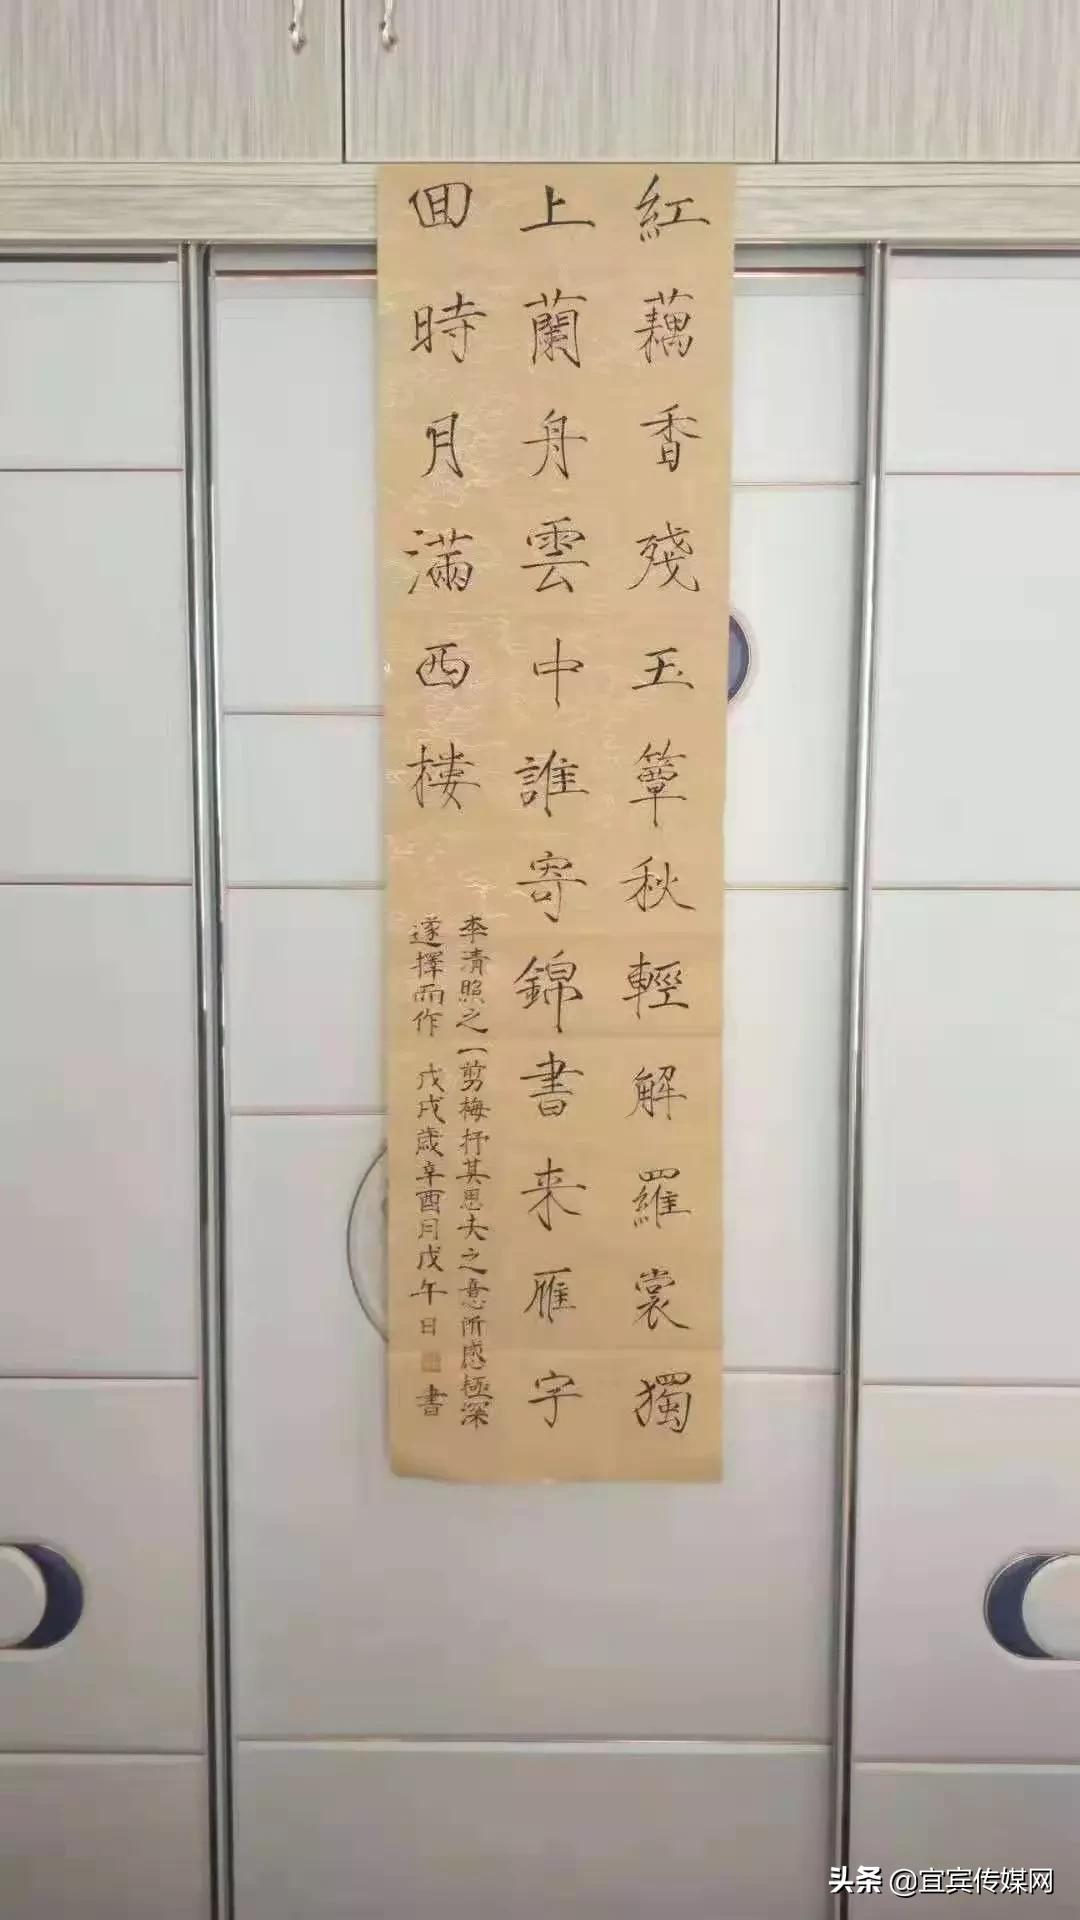 紅藕香殘玉簟秋輕解羅裳獨
上蘭舟雲中誰寄錦書来雁字
回時月滿西樓
李清照之一剪梅抒其思夫之意所感極深
遂擇而作 戊戌歲辛酉月戊午日 書
头条 @宜宾传媒网